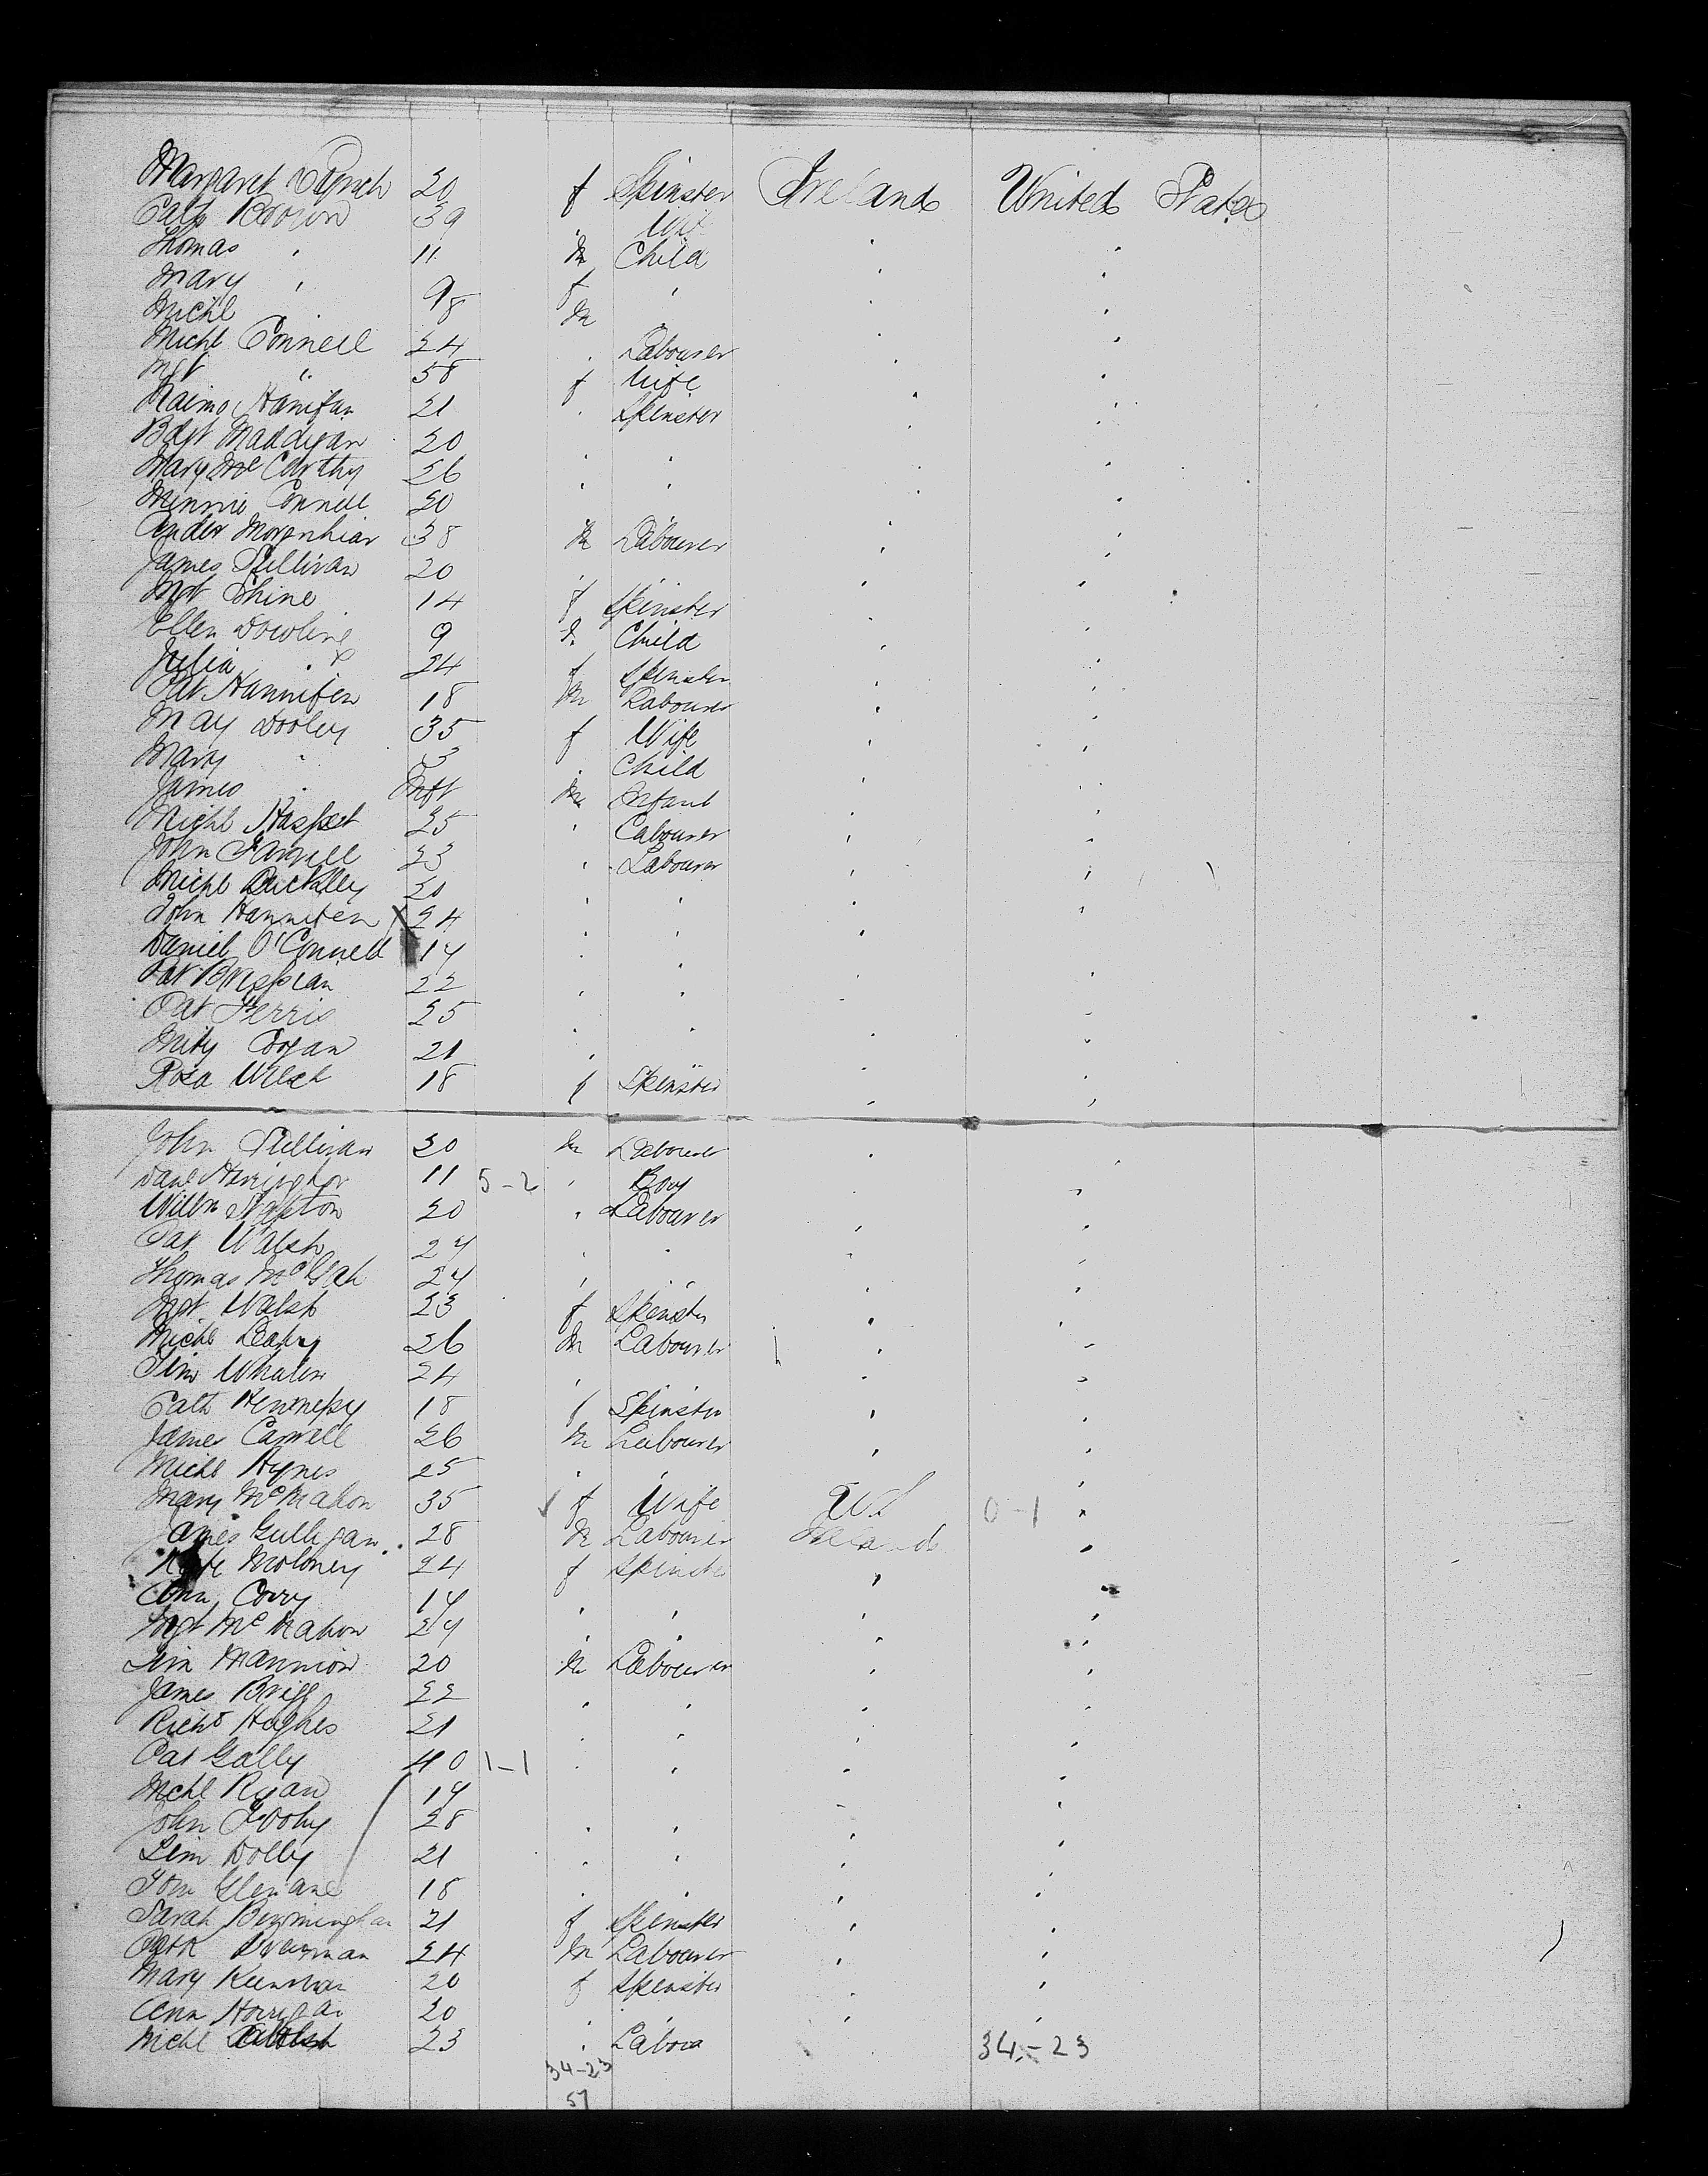 Margaret Lynch 20 f Spinster Ireland United States
Cath Brown 39 " Wife
Thomas " 11 m Child " "
Mary " 9 f " " "
Michl " 8 m " " "
Michl Connell 24 " Labourer " "
Mgt " 58 f Wife " "
Hanifan 21 " Spinster " "
Bdgt Maddigan 20 " " " "
Mary Mc Carthy 26 " " " "
Minnie Connell 20
38 m Labourer " "
James Sullivan 20 " " "
Mgt Shine 14 f Spinster
Ellen Dowling 9 Child " "
Julia " 24 f Spinster " "
Pat Hannifen 18 m Labourer " "
May Dooley 35 f Wife " "
Mary " 3 " Child
James " Inft m Infant " "
Michl 25 " Labourer " "
John Farrell 23 " Labourer " "
Michl Buckley 21 " " "
John Hannifen 24 " " "
Daniel O'Connell 17 " "
Pat 22 " " " "
Pat Ferris 25 " " " "
21 " " "
Rosa Welsh 18 f Spinster " "
John Sullivan 20 m Labourer " "
Danl 11 5-2 " Boy " "
Willm 20 " Labourer " "
Pat Walsh 27 " " " "
Thomas 27 " " "
Mgt Walsh 23 f Spinster " "
Michl Leahy 26 m Labourer " "
Tim Whalen 24 " " "
Cath Hennessy 18 f Spinster " "
James 26 m Labourer " "
Michl Hynes 25 " " "
Mary McMahon 35 f Wife U.S. 0-1 "
James Gulligan 28 m Labourer Ireland "
Kate Moloney 24 f Spinster " "
Ann Corry 17 " " " "
Mgt McMahon 27 " " " "
Tim Mannion 20 m Labourer " "
James 22 " " " "
Richd Hughes 21 " " " "
Pat Gally 40 1-1 " " " "
Michl Ryan 17 " "
John 28 " " " "
Tim Dolly 21 " " " "
Tom 18 " " " "
Sarah Birmingham 21 f Spinster " "
Patk 24 m Labourer " "
Mary 20 f Spinster "
Ann Horrigan 20 " " " "
Michl Walsh 23 " Labour "
34-23
34-23
57